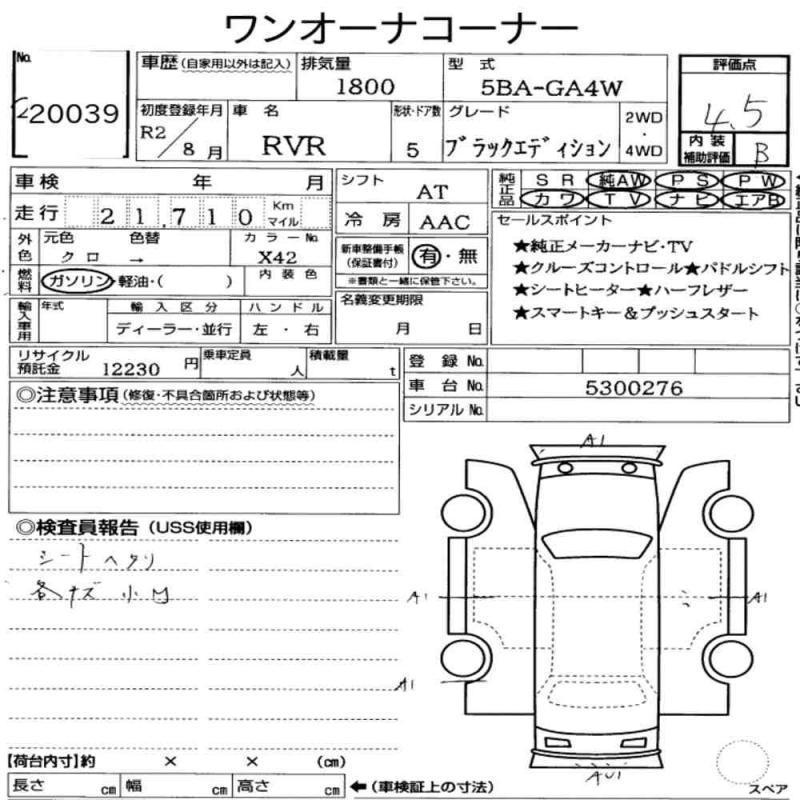 ワンオーナコーナー
No.
20039
車歴(自家用以外は記入)
排気量
1800
型 式
5BA-GA4W
評価点
4.5
内装補助評価
B
初度登録年月
R2/8月
車 名
RVR
形状・ドア数
5
グレード
ブラックエディション
2WD
・
4WD
車検 年 月
走行 21,710 Km マイル
シフト
AT
冷 房
AAC
純正品
SR 純AW PS PW
カワ TV ナビ エアB
外色
元色 色替
クロ →
カラーNo.
X42
燃料
ガソリン・軽油・( )
内装色
新車整備手帳
(保証書付)
有・無
※書類と一緒に保管下さい。
名義変更期限
月 日
セールスポイント
★純正メーカーナビ・TV
★クルーズコントロール★パドルシフト
★シートヒーター★ハーフレザー
★スマートキー&プッシュスタート
輸入車用
年式
輸入区分
ディーラー・並行
ハンドル
左・右
リサイクル預託金
12230 円
乗車定員
人
積載量
t
登録No.
車台No.
5300276
シリアルNo.
◎注意事項(修復・不具合箇所および状態等)
◎検査員報告(USS使用欄)
シートヘタリ
各キズ小凹
A1
A1
A1
A1
【荷台内寸】約 × × (cm)
長さ cm 幅 cm 高さ cm
←(車検証上の寸法)
スペア